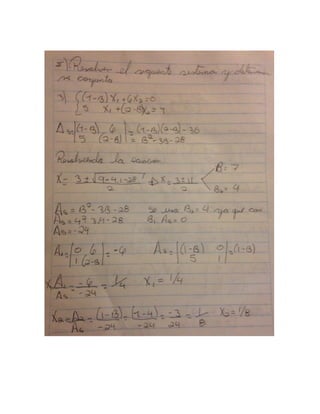 5) Resolver el siguiente sistema y determine
su conjunto
3) {(1-B)X₁+6X₂=0
{5 X₁+(2-B)X₂=1
Δs=|(1-B) 6| = (1-B)(2-B)-30
|5 (2-B)| = B²-3B-28
Resolviendo la ecuación
X= 3±√9-4.1-28 / 2 X= 3±11 / 2 B₁=7
B₂=4
Δs=B²-3B-28 Se usa B₂=4 ya que con
Δs=4²-3.4-28 B₁ Δs=0
Δs=-24
Δ₁=|0 6| =-6 Δ₂=|(1-B) 0| =(1-B)
|1 (2-B)| |5 1|
X₁=Δ₁/Δs = -6/-24 = 1/4 X₁=1/4
X₂=Δ₂/Δs = (1-B)/-24 = (1-4)/-24 = -3/24 = 1/8 X₂=1/8